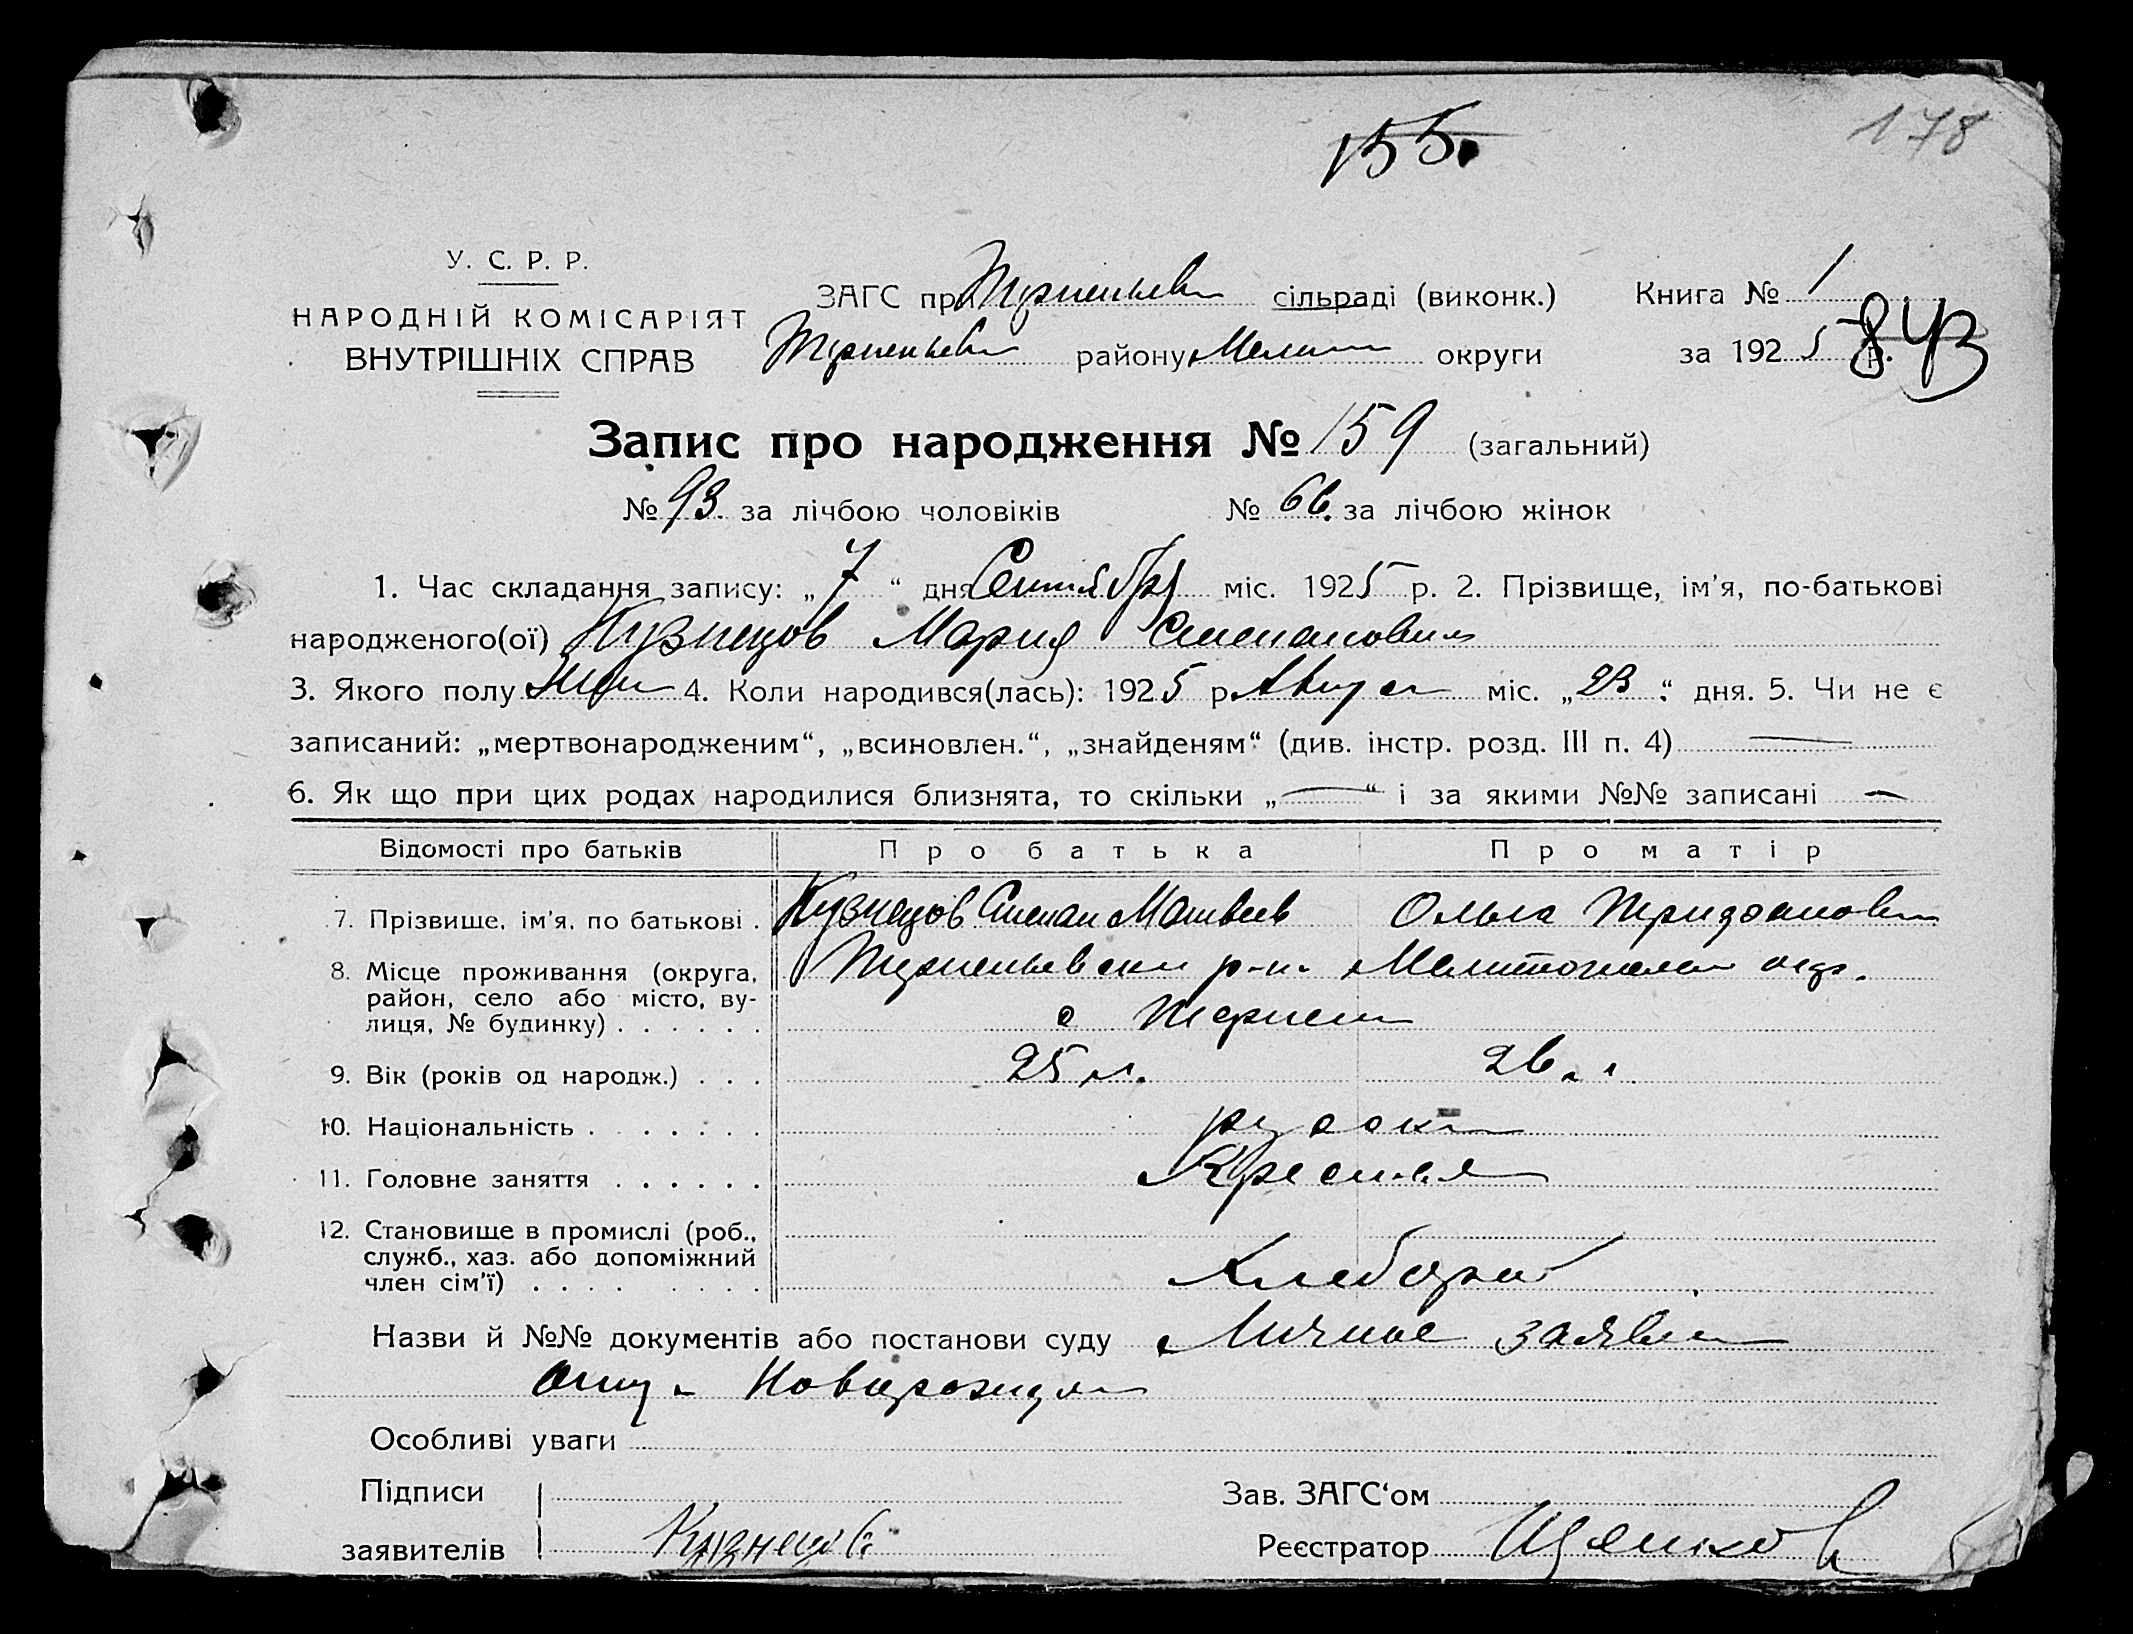 155.
178
У. С. Р. Р.
НАРОДНІЙ КОМІСАРІЯТ
ВНУТРІШНІХ СПРАВ
ЗАГС при сільраді (виконк.) Книга № 1
району Мелит округи за 1925 р.
843
Запис про народження № 159 (загальний)
№ 93. за лічбою чоловіків № 66. за лічбою жінок
1. Час складання запису: „7“ дня Сентября міс. 1925 р. 2. Прізвище, ім'я, по-батькові
народженого(ої) Кузнецов Мария Степанови
3. Якого полу Жен 4. Коли народився(лась): 1925 р. Август міс. „23“ дня. 5. Чи не є
записаний: „мертвонародженим“, „всиновлен.“, „знайденям“ (див. інстр. розд. III п. 4) —
6. Як що при цих родах народилися близнята, то скільки „—“ і за якими №№ записані —
Відомості про батьків Про батька Про матір
7. Прізвище, ім'я, по батькові . Кузнецов Степан Матвеев Ольга
8. Місце проживання (округа, район, село або місто, вулиця, № будинку) . . . . . . р-н. Мелитопольск окр.
с
9. Вік (років од народж.) . . . 25 л. 26 л.
10. Національність . . . . . . русск
11. Головне заняття . . . . . . Крестья
12. Становище в промислі (роб., служб., хаз. або допоміжний член сім'ї) . . . . Хлебороб
Назви й №№ документів або постанови суду Личное заявл
отц. Новорожд
Особливі уваги
Підписи Зав. ЗАГС'ом
заявителів Кузнецов Реєстратор